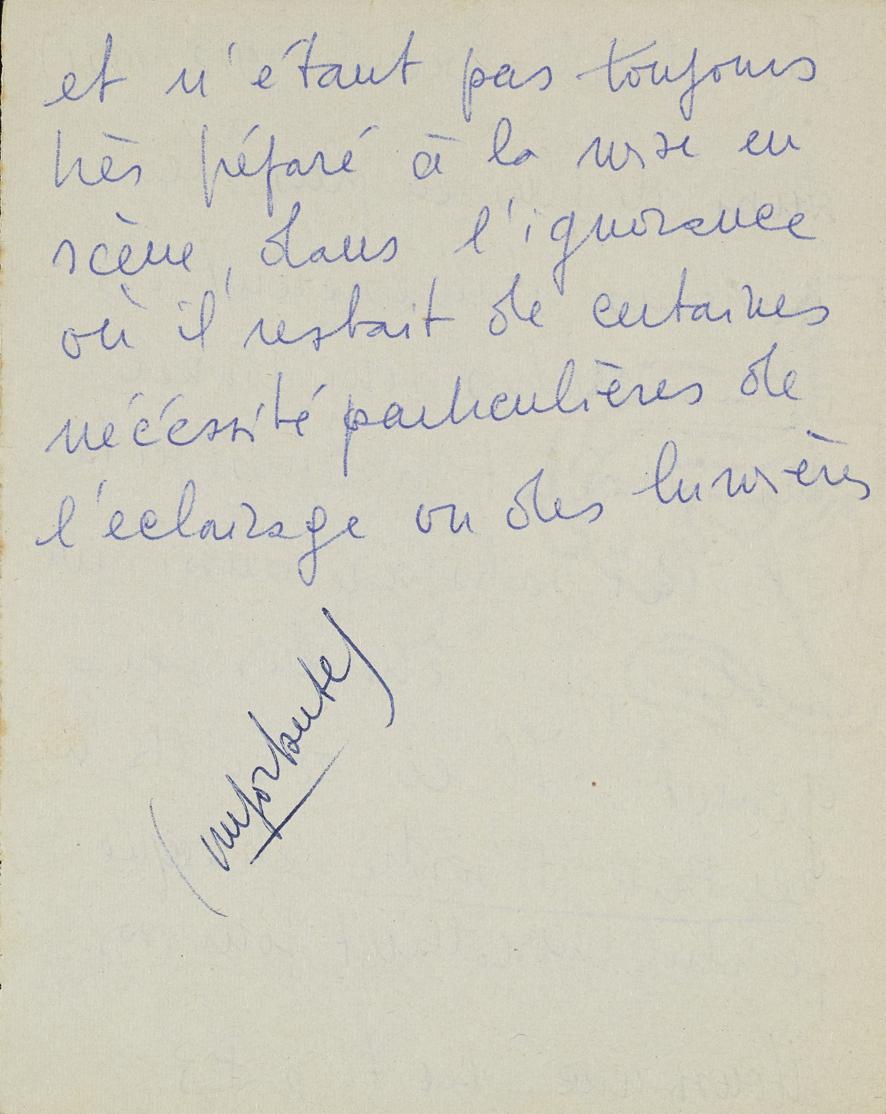 et n'étant pas toujours
très préparé à la mise en
scène, dans l'ignorance
où il restait de certaines
nécéssité particulières de
l'eclairage ou des lumières
(importante)